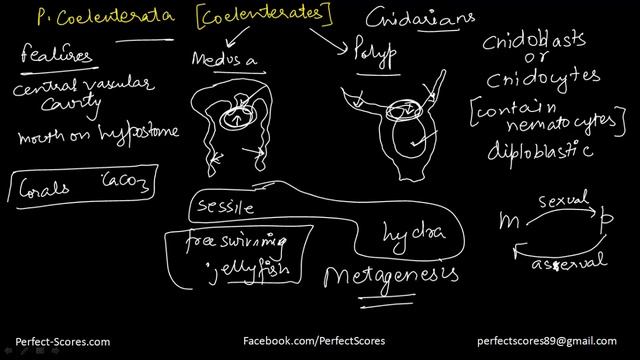 P. Coelenterata [Coelenterates] Cnidarians
features
central vascular
cavity
mouth on hypostome
Corals CaCO3
Medusa
Polyp
Cnidoblasts
or
Cnidocytes
[contain
nematocytes]
diploblastic
sessile
hydra
free swimming
jellyfish
Metagenesis
sexual
M P
asexual
Perfect-Scores.com
Facebook.com/PerfectScores
perfectscores89@gmail.com